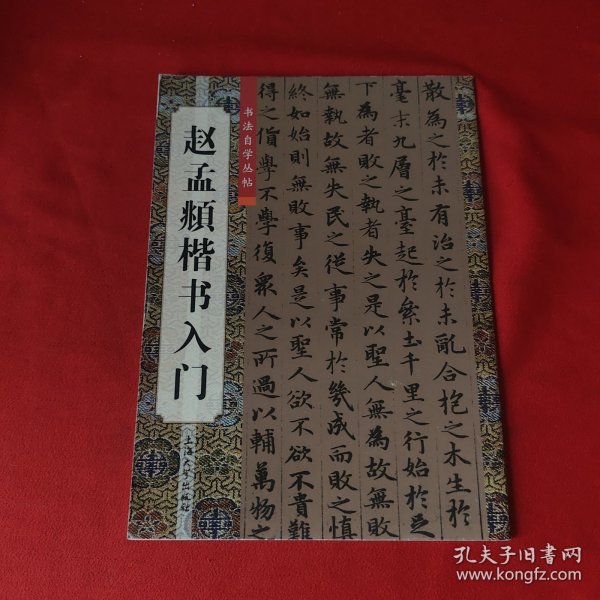 书法自学丛帖
赵孟頫楷书入门
上海大学出版社
散為之於未有治之於未亂合抱之木生於
毫末九層之臺起於累土千里之行始於足
下為者敗之執者失之是以聖人無為故無敗
無執故無失民之從事常於幾成而敗之慎
終如始則無敗事矣是以聖人欲不欲不貴難
得之貨學不學復衆人之所過以輔萬物之
孔夫子旧书网
www.kongfz.com